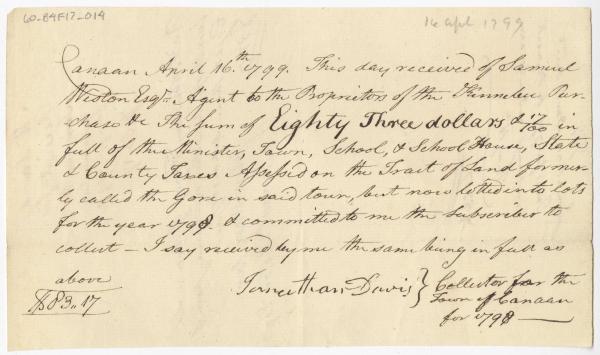 60-B4F17-014
16 Apl 1799
Canaan April 16.th 1799. This day received of Samuel
Weston Esqr. Agent to the Proprietors of the Kennebec Pur-
chase &c The sum of Eighty Three dollars & 17/100 in
full of the Minister, Town, School, & School House, State
& County Taxes Assessed on the Tract of Land former-
ly called the Gore in said town, but now lotted into lots
for the year 1798. & committed to me the subscriber to
collect – I say received by me the same being in full as
above
$83.,17
Jonathan Davis } Collector for the
Town of Canaan
for 1798 —